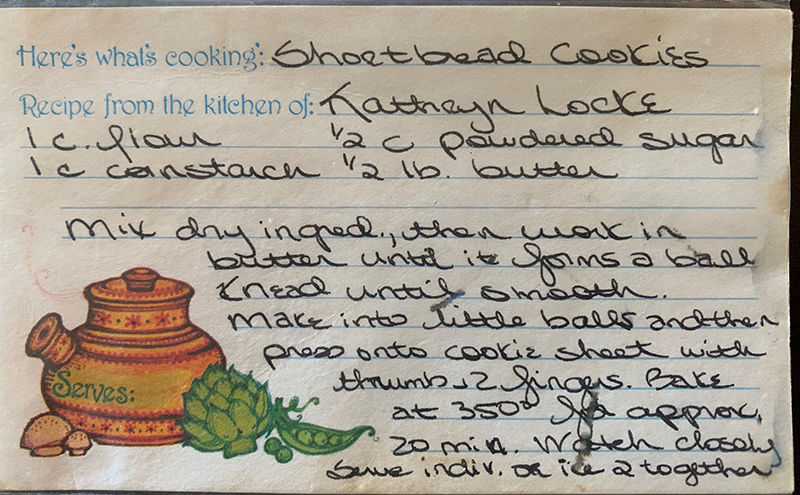 Here's what's cooking: Shortbread Cookies
Recipe from the kitchen of: Kathryn Locke
1 c. flour 1/2 c powdered sugar
1 c cornstarch 1/2 lb. butter
Mix dry ingred., then work in
butter until it forms a ball
Knead until smooth.
Make into little balls and then
press onto cookie sheet with
thumb + 2 fingers. Bake
at 350° for approx.
20 min. Watch closely
Serve indiv. or ice 2 together
Serves: